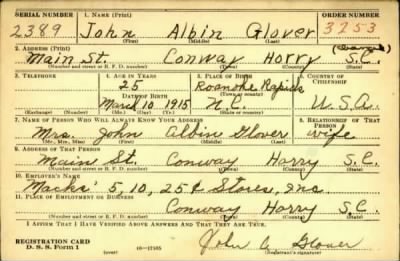 SERIAL NUMBER 1. NAME (Print) ORDER NUMBER
2389 John Albin Glover 3253
(First) (Middle) (Last)
2. ADDRESS (Print)
Main St. Conway Horry S.C.
(Number and street or R. F. D. number) (Town) (County) (State)
3. TELEPHONE 4. AGE IN YEARS 5. PLACE OF BIRTH 6. COUNTRY OF CITIZENSHIP
25 Roanoke Rapids
DATE OF BIRTH (Town or county)
March 10 1915 N.C. U.S.A.
(Exchange) (Number) (Mo.) (Day) (Yr.) (State or country)
7. NAME OF PERSON WHO WILL ALWAYS KNOW YOUR ADDRESS 8. RELATIONSHIP OF THAT PERSON
Mrs. John Albin Glover wife
(Mr., Mrs., Miss) (First) (Middle) (Last)
9. ADDRESS OF THAT PERSON
Main St. Conway Horry S.C.
(Number and street or R. F. D. number) (Town) (County) (State)
10. EMPLOYER'S NAME
Macks' 5, 10, 25¢ Stores, Inc.
11. PLACE OF EMPLOYMENT OR BUSINESS
Conway Horry S.C.
(Number and street or R. F. D. number) (Town) (County) (State)
I AFFIRM THAT I HAVE VERIFIED ABOVE ANSWERS AND THAT THEY ARE TRUE.
REGISTRATION CARD
D. S. S. Form 1 (over) John A Glover
(Registrant's signature)